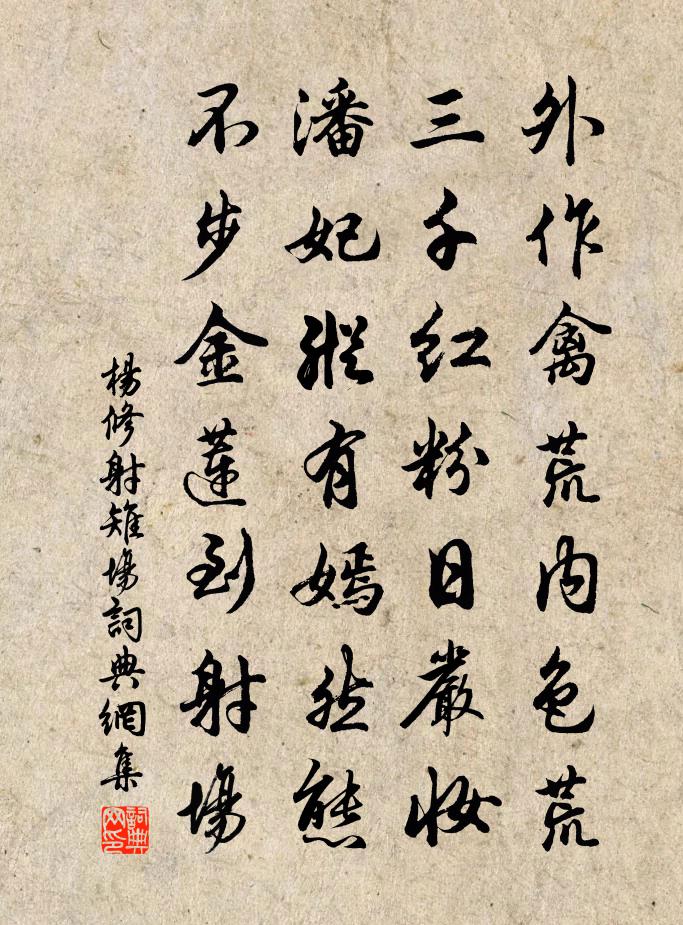 外作禽荒内色荒
三千紅粉日嚴妝
潘妃縱有嫣然態
不步金蓮到射場
楊修射雉場詞典網集
詞典网印